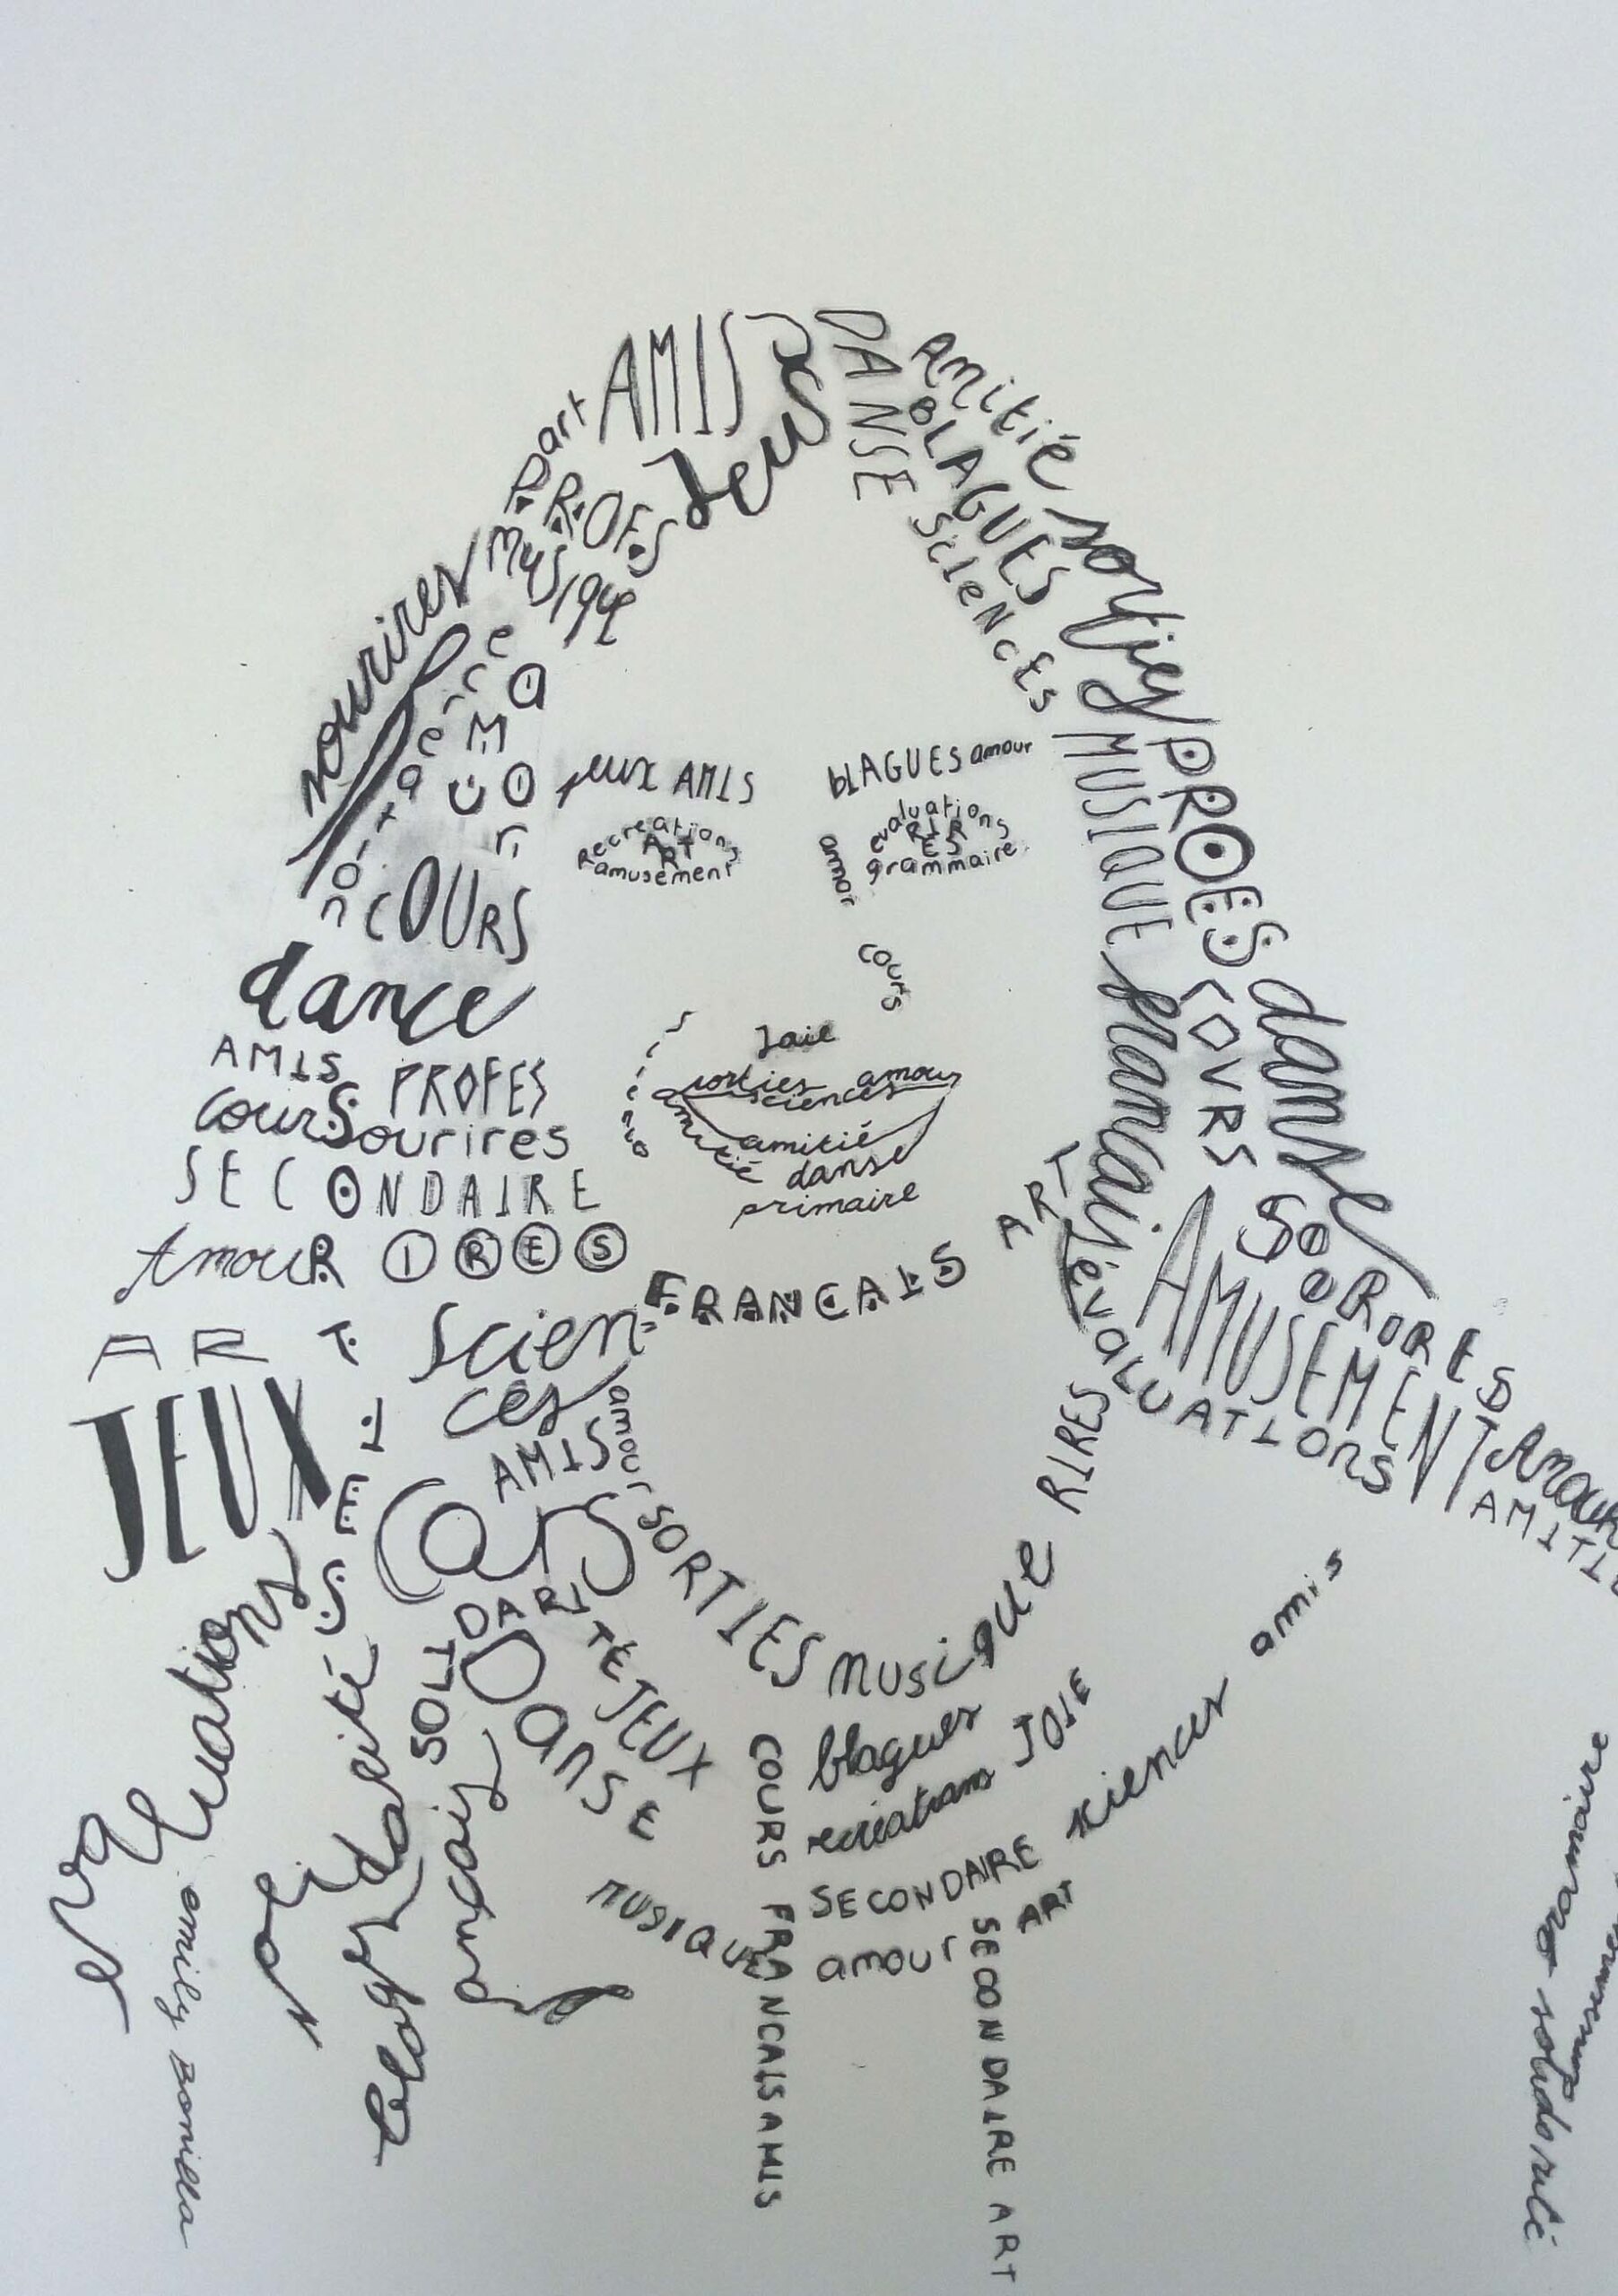 AMIS
Jeux
art
PROFES
musique
sourires
récréation
AMOUR
COURS
dance
AMIS PROFES
cours Sourires
SECONDAIRE
AmouR IRES
ART Sciences
JEUX
AMIS
amour
DANSE
amitié
BLAGUES
sciences
sorties
PROFES
MUSIQUE
COURS
danse
francais
jeux AMIS
blAGUES amour
Recreations
ART
amusement
evaluations
RIRES
grammaire
amour
cours
Joie
sorties amour
sciences
amitié
amitié danse
primaire
FRANCAIS
ART
évaluations
AMUSEMENT
Amour
RIRES
SORTIES
musique
SOLIDARITÉ
JEUX
Danse
evaluations
solidarité
francais
emily Bonilla
COURS FRANCAIS AMIS
blagues
récréations JOIE
SECONDAIRE sciences amis
MUSIQUE
amour ART
SECONDAIRE ART